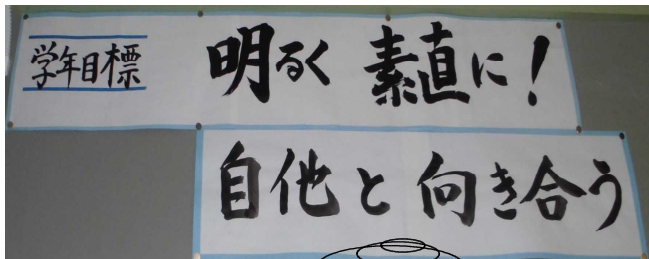 学年目標 明るく 素直に!
自他と 向き合う